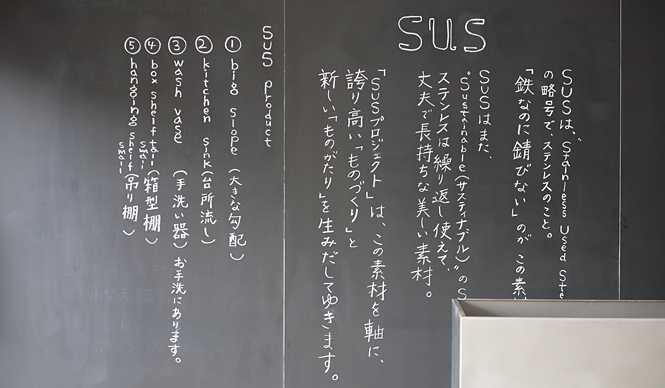 SUS
SUSは、"Stainless Used
の略号で、ステンレスのこと。
「鉄なのに錆びない」のがこの素
SUSはまた、
"Sustainable(サスティナブル)のS
ステンレスは繰り返し使えて、
丈夫で長持ちな美しい素材。
「SUSプロジェクト」は、この素材を軸に、
誇り高い「ものづくり」と
新しい「ものがたり」を生みだしてゆきます。
SUS product
① big slope (大きな勾配)
② kitchen sink (台所流し)
③ wash vase (手洗い器) お手洗にあります。
④ box shelf tall small (箱型棚)
⑤ hanging shelf small (吊り棚)